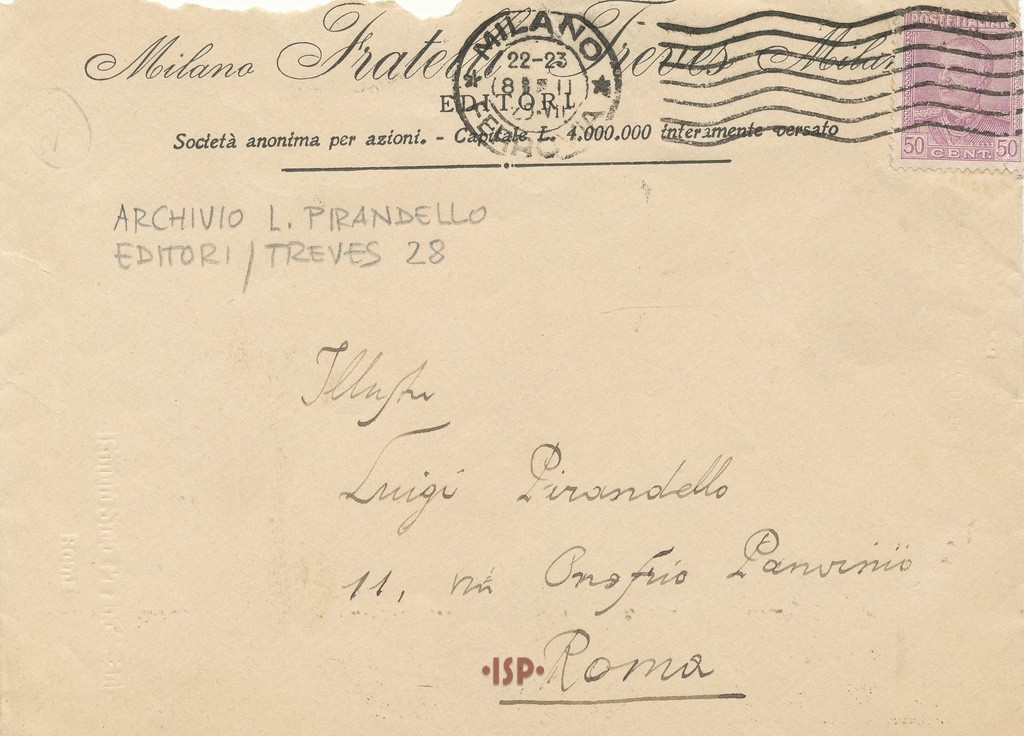 Milano Fratelli Treves Milano
EDITORI
Società anonima per azioni. - Capitale L. 4.000.000 interamente versato
MILANO
22-23
29-VII
POSTE ITALIANE
50 CENT. 50
ARCHIVIO L. PIRANDELLO
EDITORI / TREVES 28
Illustre
Luigi Pirandello
11, via Onofrio Panvinio
·ISP· Roma